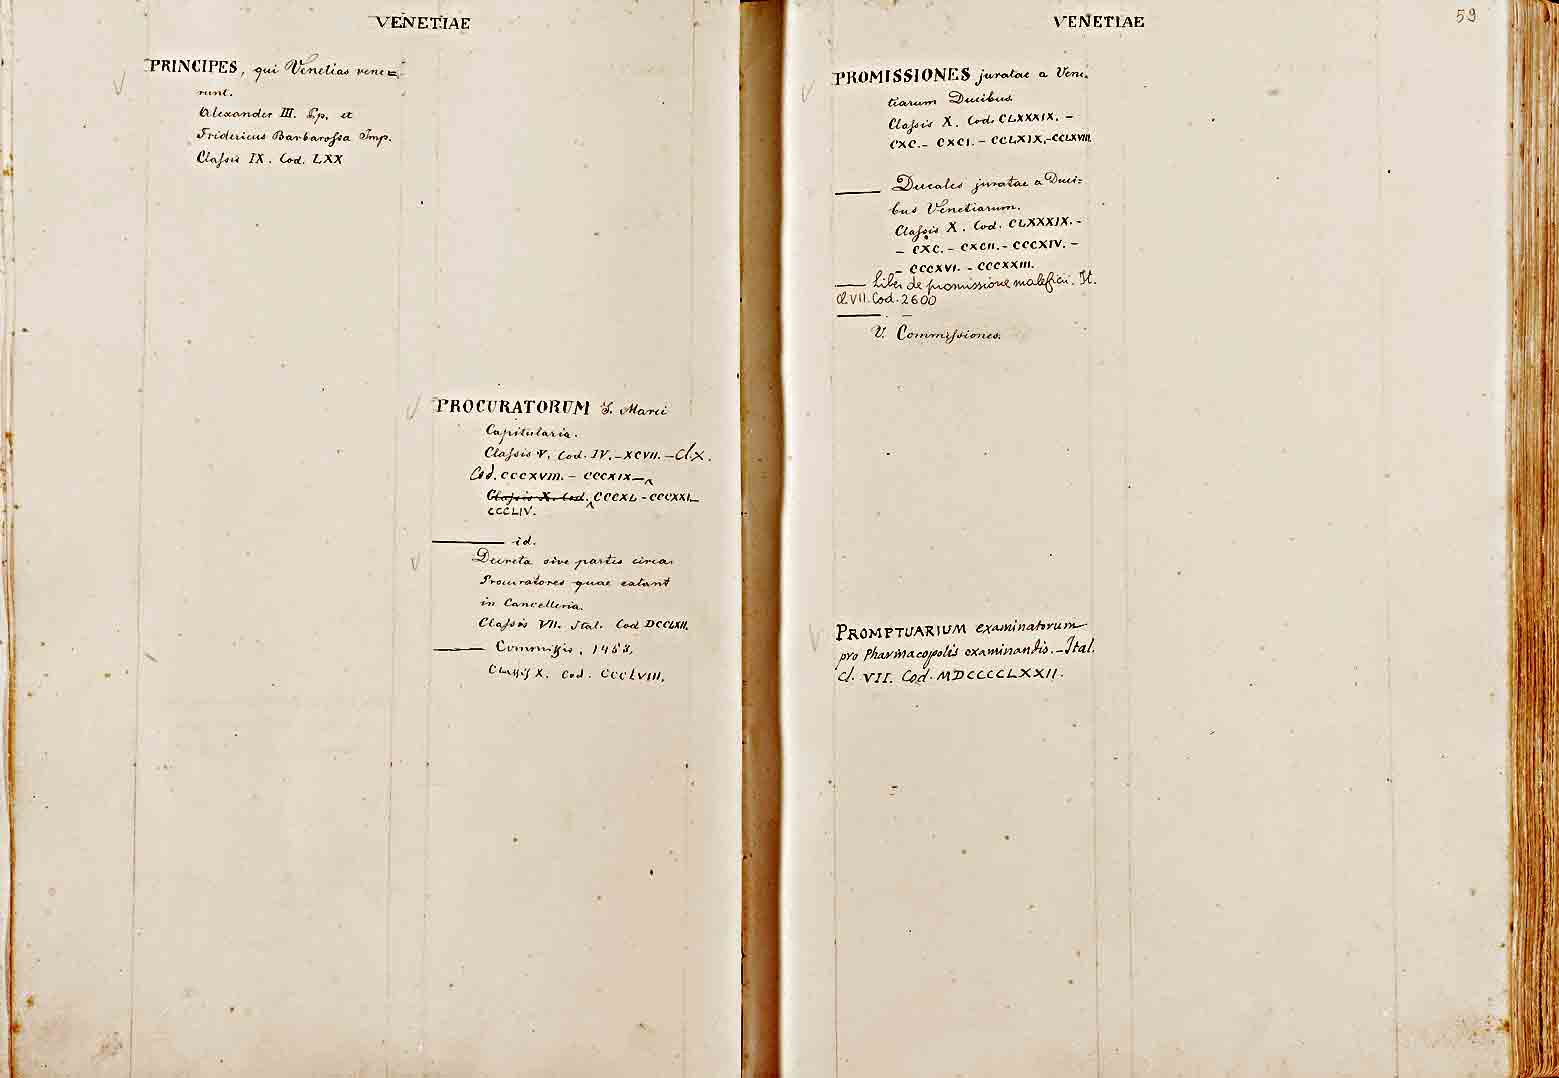 VENETIAE
PRINCIPES, qui Venetias vene=
runt.
Alexander III. Pp. et
Fridericus Barbarossa Imp.
Classis IX. Cod. LXX
PROCURATORUM S. Marci
Capitularia.
Classis V. Cod. IV. - XCVII. - Cl. X.
Cod. CCCXVIII. - CCCXIX -
Classis X. Cod. CCCXL - CCCXXI -
CCCLIV.
id.
Decreta sive partes circa
Procuratores quae extant
in Cancelleria.
Classis VII. Ital. Cod DCCLXII.
Commissio, 1453.
Classis X. Cod. CCCLVIII.
VENETIAE
59
PROMISSIONES juratae a Vene.
tiarum Ducibus.
Classis X. Cod. CLXXXIX. -
CXC. - CXCI. - CCLXIX. - CCLXVIII.
Ducales juratae a Duci=
bus Venetiarum.
Classis X. Cod. CLXXXIX. -
- CXC. - CXCII. - CCCXIV. -
- CCCXVI. - CCCXXIII.
Liber de promissione maleficii. It.
Cl. VII. Cod. 2600
V. Commissiones.
PROMPTUARIUM examinatorum
pro Pharmacopolis examinandis. - Ital.
Cl. VII. Cod. MDCCCCLXXII.